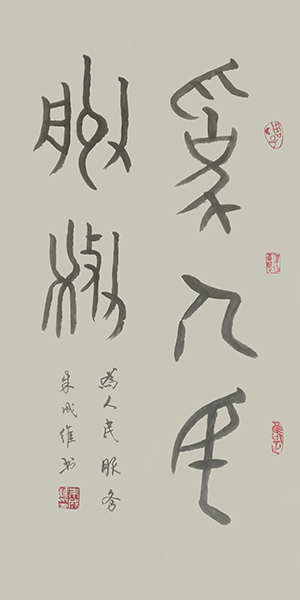 為人民
服務
為人民服务
朱成維书